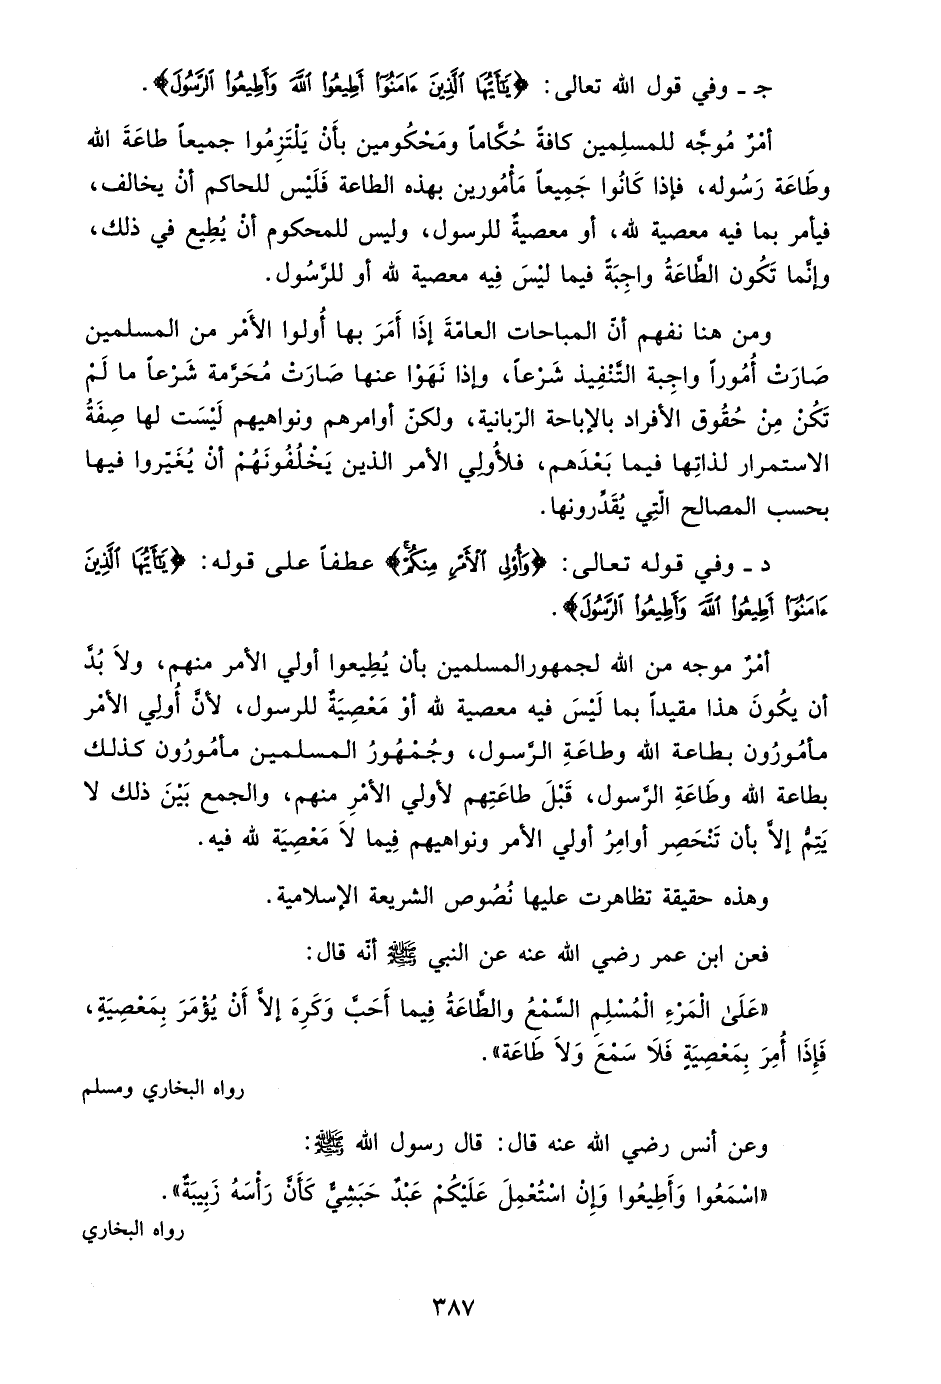 جـ ـ وفي قول الله تعالى: ﴿يَٰٓأَيُّهَا ٱلَّذِينَ ءَامَنُوٓا۟ أَطِيعُوا۟ ٱللَّهَ وَأَطِيعُوا۟ ٱلرَّسُولَ﴾.
أمْرٌ مُوجَّه للمسلِمين كافةً حُكَّاماً ومَحْكُومين بأَنْ يَلْتَزِمُوا جميعاً طاعَةَ الله
وطَاعَة رَسُوله، فإذا كَانُوا جَمِيعاً مَأْمُورين بهذه الطاعة فَلَيْس للحاكم أنْ يخالف،
فيأمر بما فيه معصية لله، أو معصيةٌ للرسول، وليس للمحكوم أنْ يُطِيع في ذلك،
وإنَّما تَكُون الطَّاعَةُ واجِبَةً فيما ليْسَ فِيه معصية لله أو للرَّسُول.
ومن هنا نفهم أنّ المباحات العامّةَ إذَا أَمَرَ بها أُولوا الأَمْر من المسلمين
صَارَتْ أُمُوراً واجِبة التَّنْفِيذ شَرْعاً، وإذا نَهَوْا عنها صَارَتْ مُحَرَّمة شَرْعاً ما لَمْ
تَكُنْ مِنْ حُقُوق الأفراد بالإباحة الرّبانية، ولكنّ أوامرهم ونواهيهم لَيْسَت لها صِفَةُ
الاستمرار لذاتِها فيما بَعْدَهم، فلأُولِي الأمر الذين يَخْلُفُونَهُمْ أنْ يُغَيّروا فيها
بحسب المصالح الّتِي يُقَدِّرونها.
د ـ وفي قوله تعالى: ﴿وَأُو۟لِى ٱلْأَمْرِ مِنكُمْ﴾ عطفاً على قوله: ﴿يَٰٓأَيُّهَا ٱلَّذِينَ
ءَامَنُوٓا۟ أَطِيعُوا۟ ٱللَّهَ وَأَطِيعُوا۟ ٱلرَّسُولَ﴾.
أمْرٌ موجه من الله لجمهورالمسلمين بأن يُطِيعوا أولي الأمر منهم، ولاَ بُدَّ
أن يكُونَ هذا مقيداً بما لَيْسَ فيه معصية لله أوْ مَعْصِيَةٌ للرسول، لأنَّ أُولِي الأمْر
مأمُورُون بطاعة الله وطاعَةِ الرَّسول، وجُمْهُورُ المسلمين مأمُورُون كذلك
بطاعة الله وطَاعَةِ الرَّسول، قَبْلَ طاعَتِهم لأولي الأمْرِ منهم، والجمع بَيْنَ ذلك لا
يَتِمُّ إلاَّ بأن تَنْحَصِر أوامِرُ أولي الأمر ونواهيهم فِيما لاَ مَعْصِيَة لله فيه.
وهذه حقيقة تظاهرت عليها نُصُوص الشريعة الإسلامية.
فعن ابن عمر رضي الله عنه عن النبي ﷺ أنّه قال:
«عَلَىٰ الْمَرْءِ الْمُسْلِمِ السَّمْعُ والطَّاعَةُ فِيما أَحَبَّ وَكَرِهَ إلاَّ أَنْ يُؤْمَرَ بِمَعْصِيَةٍ،
فَإِذَا أُمِرَ بِمَعْصِيَةٍ فَلَا سَمْعَ وَلاَ طَاعَة».
رواه البخاري ومسلم
وعن أنس رضي الله عنه قال: قال رسول الله ﷺ:
«اسْمَعُوا وَأَطِيعُوا وَإِنْ اسْتُعْمِلَ عَلَيْكُمْ عَبْدٌ حَبَشِيٌّ كَأَنَّ رَأْسَهُ زَبِيبَةٌ».
رواه البخاري
٣٨٧